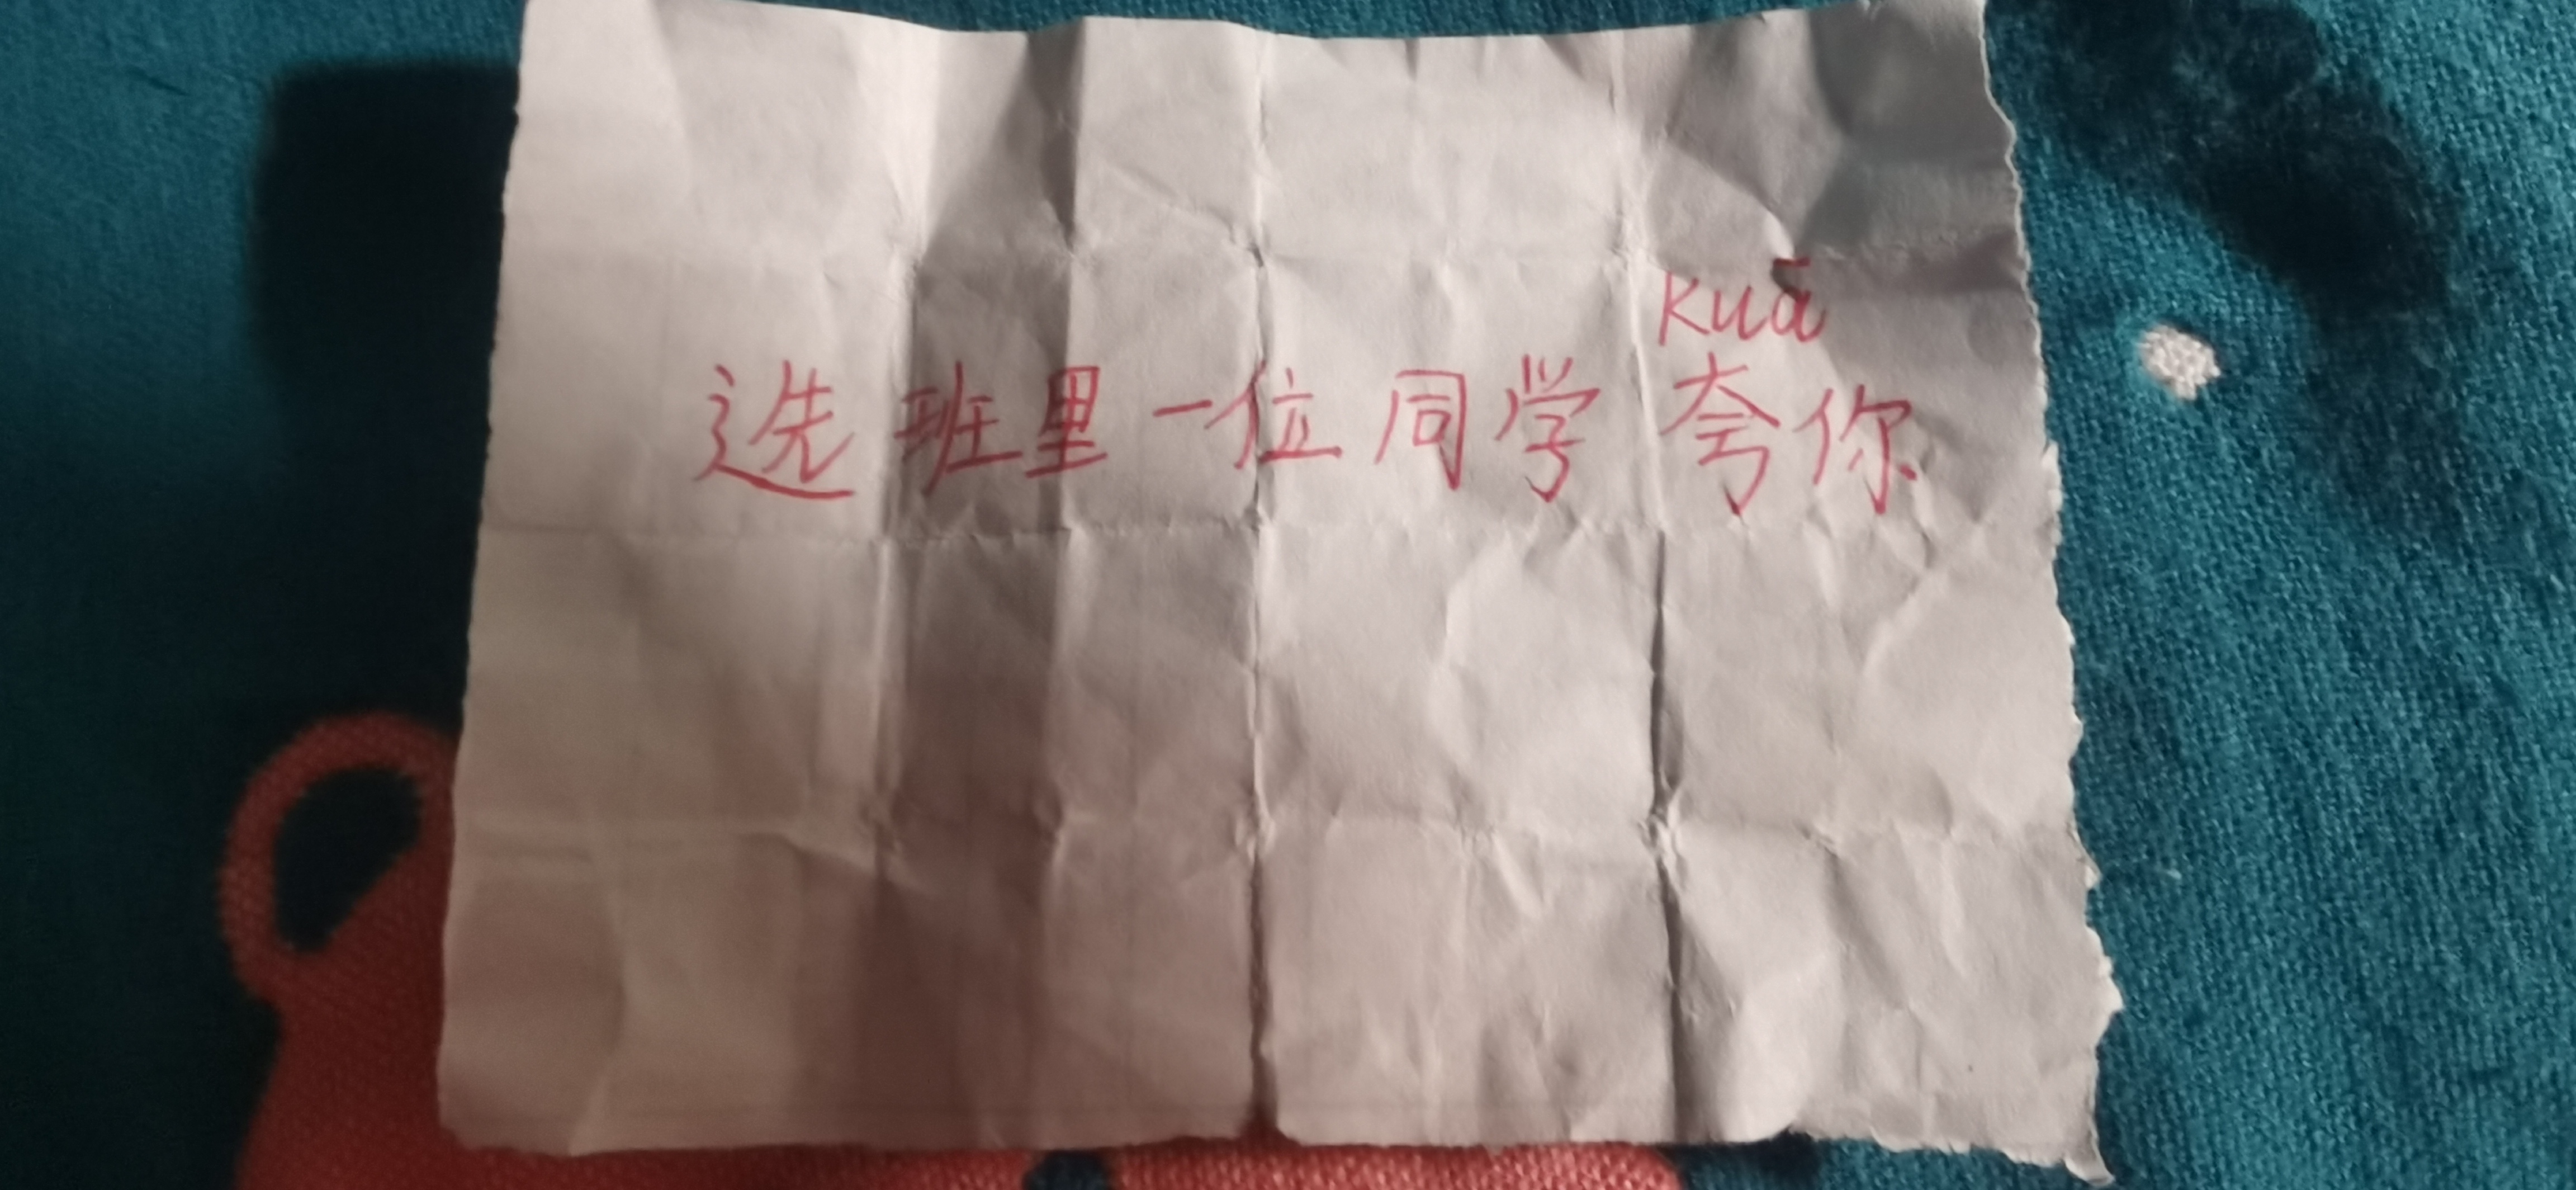 kuā
选班里一位同学夸你